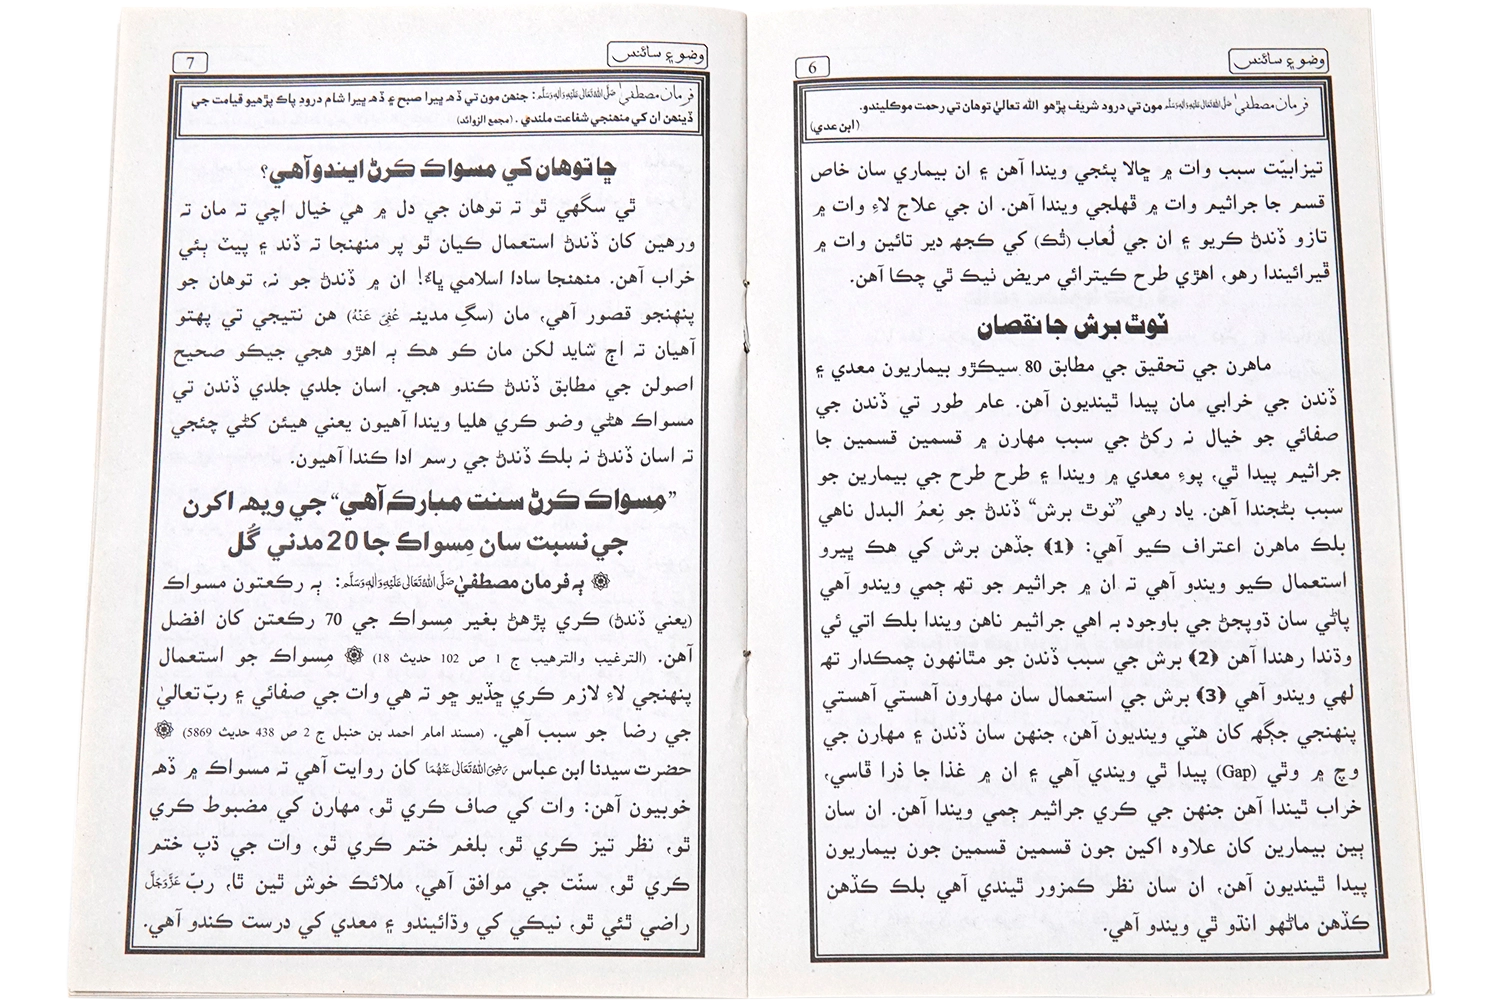 وضو ۽ سائنس
6
فرمان مصطفيٰ صَلَّی اللہُ تَعَالٰی عَلَیْہِ وَاٰلِہٖ وَسَلَّم مون تي درود شريف پڙهو الله تعاليٰ توهان تي رحمت موڪليندو.
(ابن عدي)
تيزابيّت سبب وات ۾ ڇالا پئجي ويندا آهن ۽ ان بيماري سان خاص
قسم جا جراثيم وات ۾ ڦهلجي ويندا آهن. ان جي علاج لاءِ وات ۾
تازو ڏندڻ ڪريو ۽ ان جي لُعاب (ٿُڪ) کي ڪجهه دير تائين وات ۾
ڦيرائيندا رهو، اهڙي طرح ڪيترائي مريض ٺيڪ ٿي چڪا آهن.
ٽوٿ برش جا نقصان
ماهرن جي تحقيق جي مطابق 80 سيڪڙو بيماريون معدي ۽
ڏندن جي خرابي مان پيدا ٿينديون آهن. عام طور تي ڏندن جي
صفائي جو خيال نہ رکڻ جي سبب مهارن ۾ قسمين قسمين جا
جراثيم پيدا ٿي، پوءِ معدي ۾ ويندا ۽ طرح طرح جي بيمارين جو
سبب بڻجندا آهن. ياد رهي ”ٽوٿ برش“ ڏندڻ جو نِعمُ البدل ناهي
بلڪ ماهرن اعتراف ڪيو آهي: ﴿1﴾ جڏهن برش کي هڪ ڀيرو
استعمال ڪيو ويندو آهي تہ ان ۾ جراثيم جو تهہ ڄمي ويندو آهي
پاڻي سان ڌوپجڻ جي باوجود بہ اهي جراثيم ناهن ويندا بلڪ اتي ئي
وڌندا رهندا آهن ﴿2﴾ برش جي سبب ڏندن جو مٿانهون چمڪدار تهہ
لهي ويندو آهي ﴿3﴾ برش جي استعمال سان مهارون آهستي آهستي
پنهنجي جڳهہ کان هٽي وينديون آهن، جنهن سان ڏندن ۽ مهارن جي
وچ ۾ وٿي (Gap) پيدا ٿي ويندي آهي ۽ ان ۾ غذا جا ذرا ڦاسي،
خراب ٿيندا آهن جنهن جي ڪري جراثيم ڄمي ويندا آهن. ان سان
ٻين بيمارين کان علاوه اکين جون قسمين قسمين جون بيماريون
پيدا ٿينديون آهن، ان سان نظر ڪمزور ٿيندي آهي بلڪ ڪڏهن
ڪڏهن ماڻهو انڌو ٿي ويندو آهي.
وضو ۽ سائنس
7
فرمان مصطفيٰ صَلَّی اللہُ تَعَالٰی عَلَیْہِ وَاٰلِہٖ وَسَلَّم: جنهن مون تي ڏهہ ڀيرا صبح ۽ ڏهہ ڀيرا شام درودِ پاڪ پڙهيو قيامت جي
ڏينهن ان کي منهنجي شفاعت ملندي. (مجمع الزوائد)
ڇا توهان کي مسواڪ ڪرڻ ايندو آهي؟
ٿي سگهي ٿو تہ توهان جي دل ۾ هي خيال اچي تہ مان تہ
ورهين کان ڏندڻ استعمال ڪيان ٿو پر منهنجا تہ ڏند ۽ پيٽ ٻئي
خراب آهن. منهنجا سادا اسلامي ڀاءُ! ان ۾ ڏندڻ جو نہ، توهان جو
پنهنجو قصور آهي، مان (سگِ مدينہ عُفِيَ عَنْهُ) هن نتيجي تي پهتو
آهيان تہ اڄ شايد لکن مان ڪو هڪ ٻہ اهڙو هجي جيڪو صحيح
اصولن جي مطابق ڏندڻ ڪندو هجي. اسان جلدي جلدي ڏندن تي
مسواڪ هڻي وضو ڪري هليا ويندا آهيون يعني هيئن کڻي چئجي
تہ اسان ڏندڻ نہ بلڪ ڏندڻ جي رسم ادا ڪندا آهيون.
”مِسواڪ ڪرڻ سنت مبارڪ آهي“ جي ويهہ اکرن
جي نسبت سان مِسواڪ جا 20 مدني گُل
ٻہ فرمان مصطفيٰ صَلَّی اللہُ تَعَالٰی عَلَیْہِ وَاٰلِہٖ وَسَلَّم: ٻہ رڪعتون مسواڪ
(يعني ڏندڻ) ڪري پڙهڻ بغير مِسواڪ جي 70 رڪعتن کان افضل
آهن. (الترغيب والترهيب ج 1 ص 102 حديث 18) مِسواڪ جو استعمال
پنهنجي لاءِ لازم ڪري ڇڏيو ڇو تہ هي وات جي صفائي ۽ ربّ تعاليٰ
جي رضا جو سبب آهي. (مسند امام احمد بن حنبل ج 2 ص 438 حديث 5869)
حضرت سيدنا ابن عباس رَضِیَ اللہُ تَعَالٰی عَنْہُمَا کان روايت آهي تہ مسواڪ ۾ ڏهہ
خوبيون آهن: وات کي صاف ڪري ٿو، مهارن کي مضبوط ڪري
ٿو، نظر تيز ڪري ٿو، بلغم ختم ڪري ٿو، وات جي ڌپ ختم
ڪري ٿو، سنّت جي موافق آهي، ملائڪ خوش ٿين ٿا، ربّ عَزَّوَجَلَّ
راضي ٿئي ٿو، نيڪي کي وڌائيندو ۽ معدي کي درست ڪندو آهي.